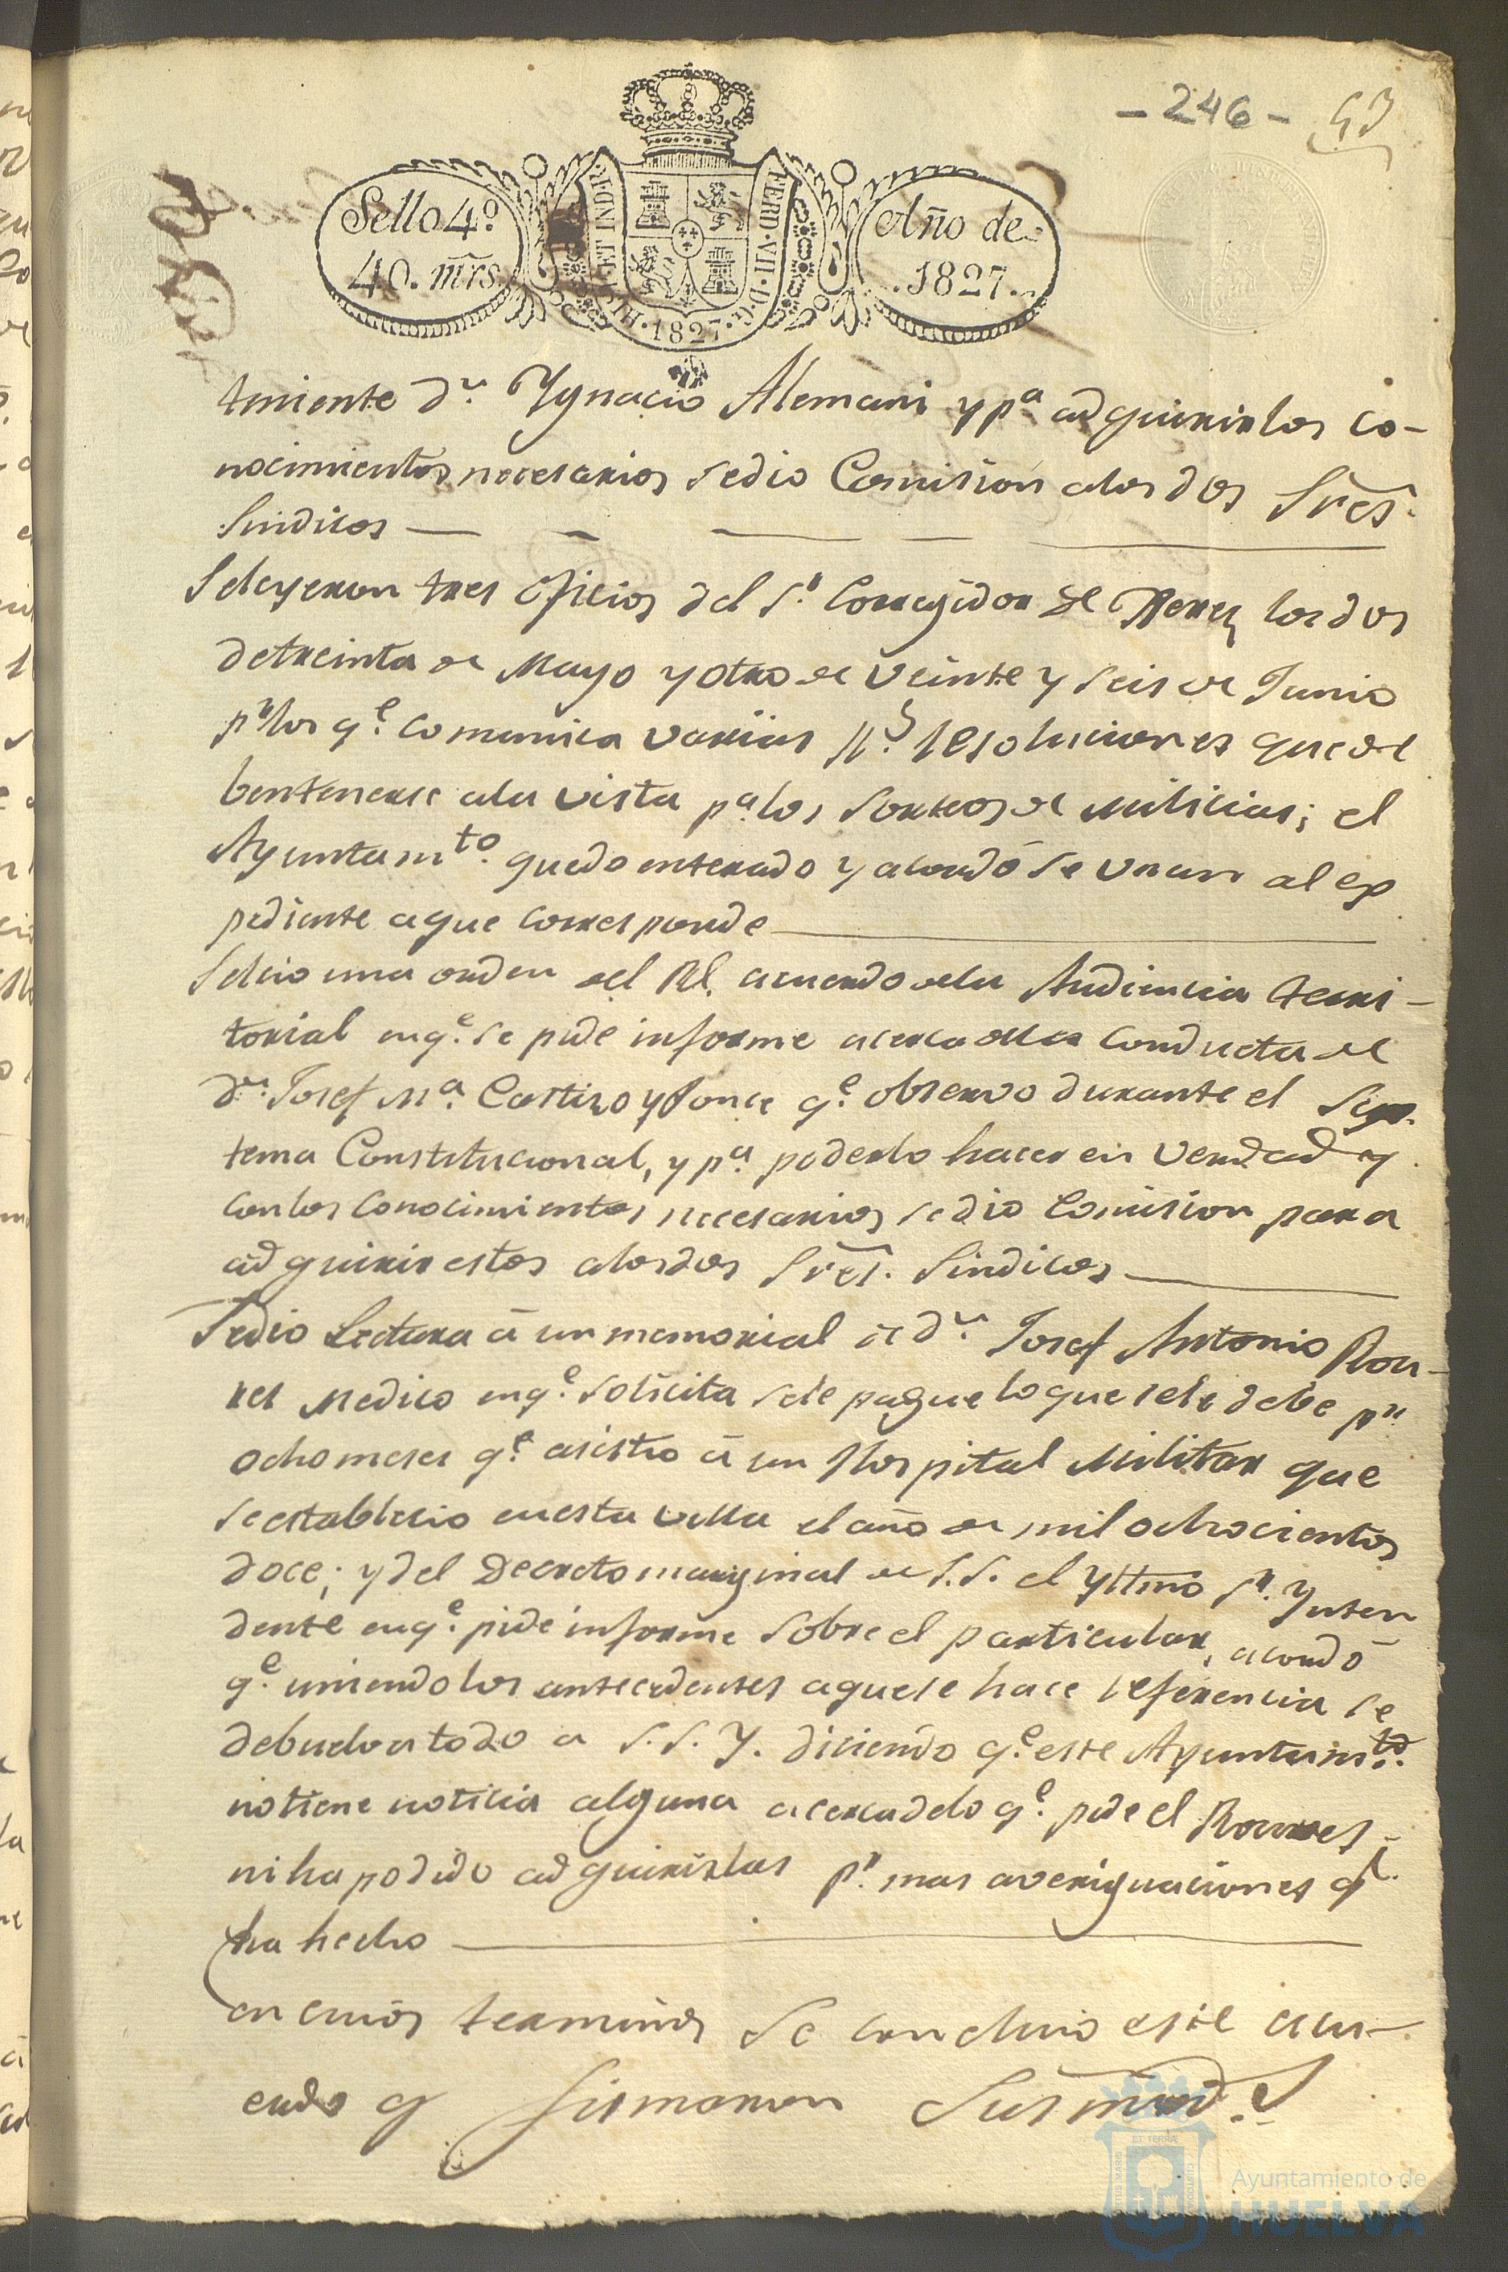 - 246 - 53
Sello 4º
40. mrs.
HISP. ET IND. R.
FERD. VII. D. G.
.1827.
Año de
.1827.
teniente dn. Ygnacio Alemani y pa. adquirir los co-
nocimientos necesarios se dio Comision a los dos Sres.
Sindicos
Se leyeron tres oficios del Sr. Corregidor de Xerez los dos
de treinta de Mayo y otro de veinte y seis de Junio
pr. los qe. comunica varias Rs. resoluciones que de
ben tenerse a la vista pa. los sorteos de Milicias; el
Ayuntamto. quedo enterado y acordó se unan al ex
pediente a que corresponde
Se leio una orden del Rl. acuerdo de la Audiencia terri-
torial en qe. se pide informe acerca de la conducta de
dn. Josef Ma. Castizo y Ponce qe. observo durante el Sys-
tema Constitucional, y pa. poderlo hacer en verdad y
con los conocimientos necesarios se dio comision para
adquirir estos a los dos Sres. Sindicos
Se dio Lectura á un memorial de dn. Josef Antonio Rou-
res Medico en qe. solicita se le pague lo que se le debe pr.
ocho meses qe. asistio á un Hospital Militar que
se establecio en esta villa el año de mil ochocientos
doce; y del Decreto marginal de S.S. el Yltmo Sr. Ynten
dente en qe. pide informe sobre el particular, acordó
qe. uniendo los antecedentes a que se hace referencia se
debuelva todo a S.S.Y. diciendo qe. este Ayuntamto.
no tiene noticia alguna acerca de lo qe. pide el Roures,
ni ha podido adquirirlas pr. mas averiguaciones qe.
ha hecho
en cuios terminos se concluio este acu-
erdo y firmaron Sus mrds.
Ayuntamiento de
HUELVA